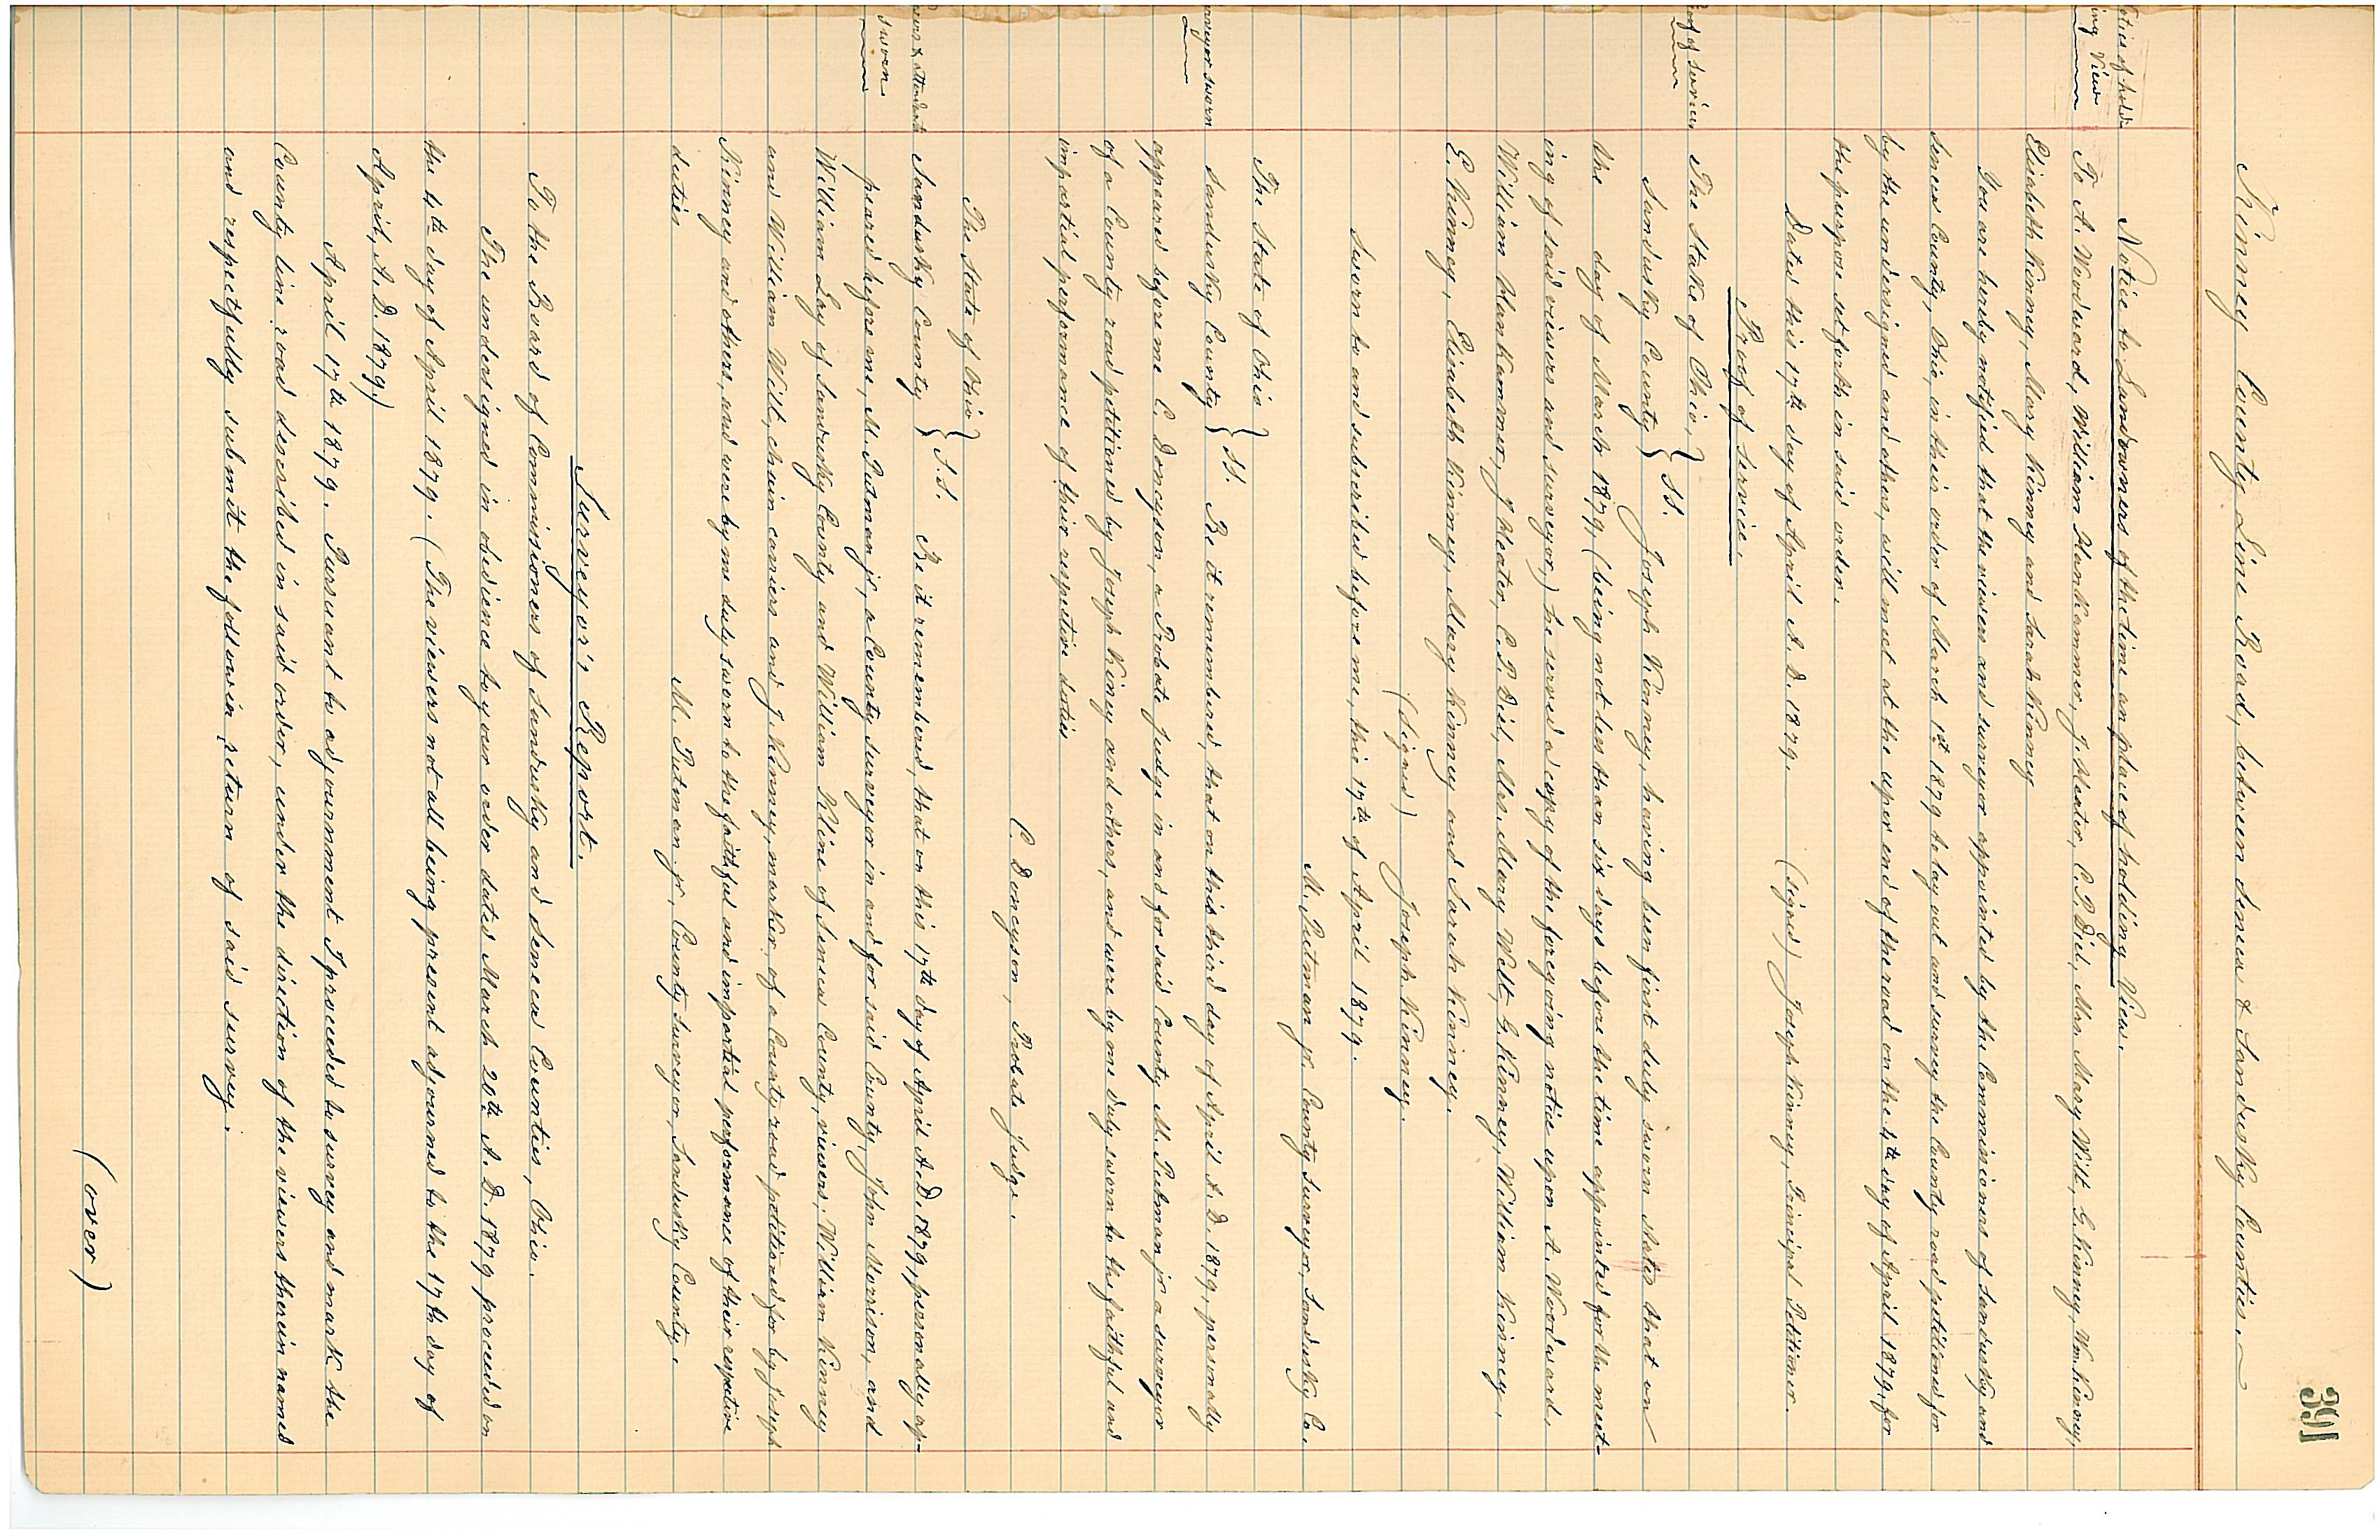 391
Kinney County Line Road, between Seneca & Sandusky Counties.
Notice to Landowners of the time an place of holding View.
ing View
To A. Woodward, William Hankammer, J. Heater, C. P. Diel, Mrs. Mary Wilt, G. Kinney, Wm. Kinney,
Elizabeth Kinney, Mary Kinney and Sarah Kinney
You are hereby notified that the viewers and surveyor appointed by the Commissioners of Sandusky and
Seneca County, Ohio, in their order of March 1st 1879 to lay out and survey the County road petitioned for
by the undersigned and others, will meet at the upper end of the road on the 4th day of April 1879, for
the purpose set forth in said order.
Dated this 17th day of April A. D. 1879. (signed) Joseph Kinney, Principal Petitioner.
Proof of Service.
of service
The State of Ohio, }
Sandusky County } SS. Joseph Kinney, having been first duly sworn states that on
the day of March 1879, (being not less than six days before the time appointed for the meet-
ing of said viewers and surveyor,) he served a copy of the foregoing notice upon A. Woodward,
William Hankammer, J Heater, C. P. Diel, Mrs. Mary Welt, G. Kinney, William Kinney,
E. Kinney, Elizabeth Kinney, Mary Kinney and Sarah Kinney.
(Signed) Joseph Kinney.
Sworn to and subscribed before me, this 17th of April 1879.
M. Putman jr. County Surveyor, Sandusky Co.
The State of Ohio }
sworn
Sandusky County } SS. Be it remembered, that on this third day of April A. D. 1879, personally
appeared before me C. Doncyson, a Probate Judge in and for said County M. Putman jr a surveyor
of a County road petitioned by Joseph Kiney and others, and were by me duly sworn to the faithful and
impartial performance of their respective duties
C. Doncyson, Probate Judge.
The State of Ohio }
sworn
Sandusky County } S.S. Be it remembered, that on this 17th day of April A.D. 1879, personally ap-
peared before me, M. Putman jr, a County surveyor in and for said County, John Morrison, and
William Lay of Sandusky County and William Kline of Seneca County, viewers, William Kinney
and William Wilt, chain carriers and J. Kinney, marker, of a County road petitioned for by Joseph
Kinney and others, and were by me duly sworn to the faithful and impartial performance of their respective
duties
M. Putman jr, County Surveyor, Sandusky County.
Surveyor's Report.
To the Board of Commissioners of Sandusky and Seneca Counties, Ohio.
The undersigned in obedience to your order dated March 20th A. D. 1879 proceeded on
the 4th day of April 1879. (The viewers not all being present adjourned to the 17th day of
April, A. D. 1879.)
April 17th 1879. Pursuant to adjournment I proceeded to survey and mark the
County line road described in said order, under the direction of the viewers therein named
and respectfully submit the followin return of said survey.
(over)